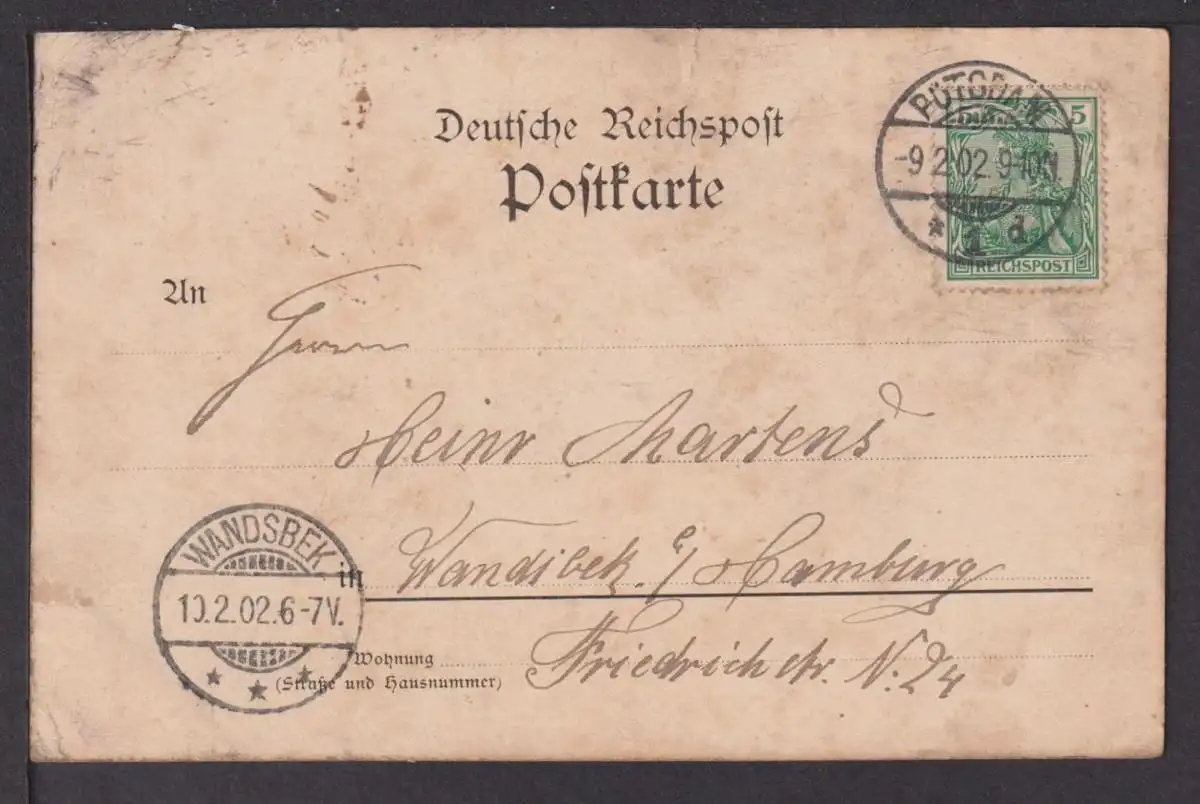 Deutsche Reichspost
Postkarte
POTSDAM
-9.2.02.9-10N.
* 1 d.
5
REICHSPOST
An
Herrn
Heinr Martens
in Wandsbek b/ Hamburg
Wohnung
(Straße und Hausnummer)
Friedrichstr. N. 24
WANDSBEK
10.2.02.6-7V.